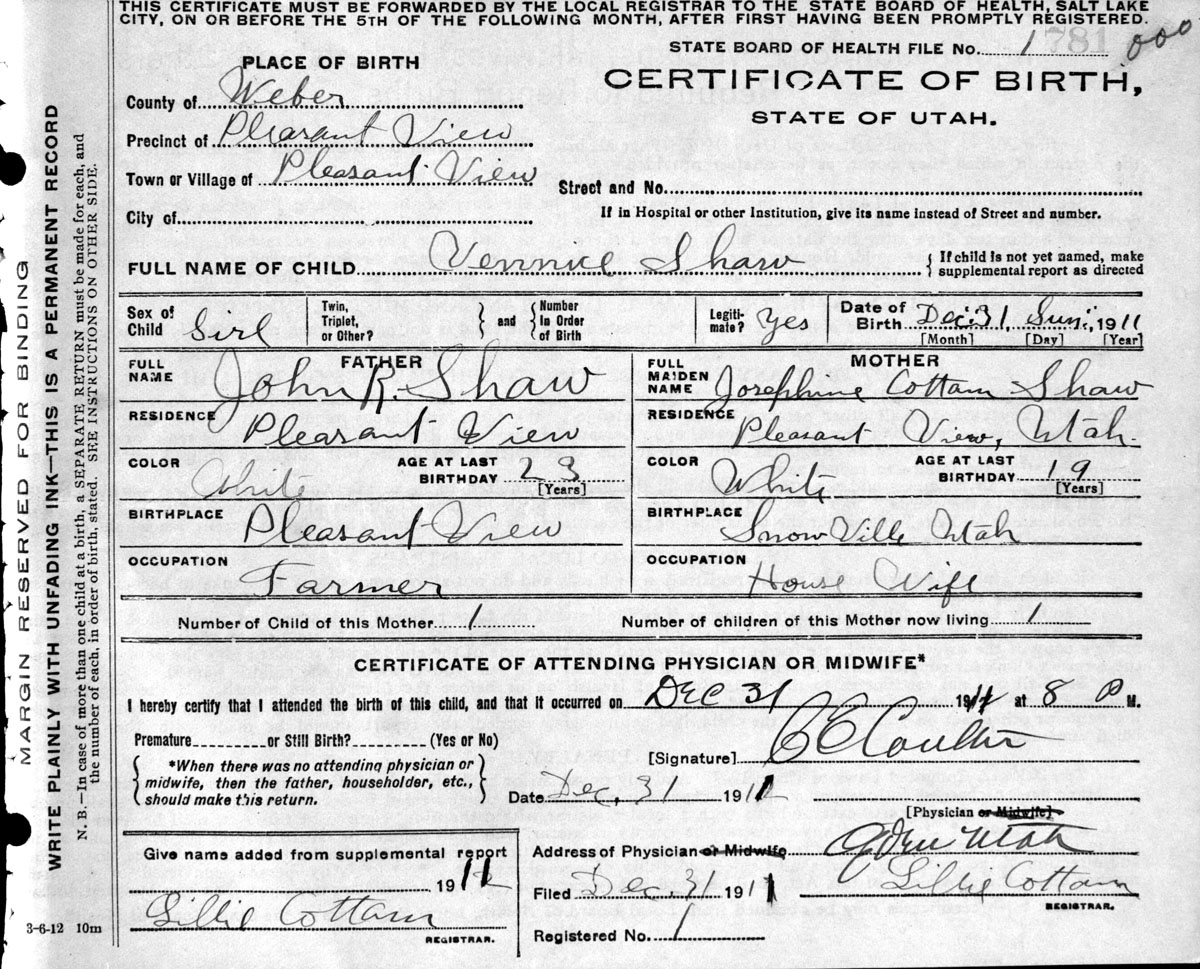 THIS CERTIFICATE MUST BE FORWARDED BY THE LOCAL REGISTRAR TO THE STATE BOARD OF HEALTH, SALT LAKE
CITY, ON OR BEFORE THE 5TH OF THE FOLLOWING MONTH, AFTER FIRST HAVING BEEN PROMPTLY REGISTERED.
STATE BOARD OF HEALTH FILE No. 1 781 000
PLACE OF BIRTH
CERTIFICATE OF BIRTH,
STATE OF UTAH.
County of Weber
Precinct of Pleasant View
Town or Village of Pleasant View
Street and No.
City of
If in Hospital or other Institution, give its name instead of Street and number.
FULL NAME OF CHILD Vennice Shaw { If child is not yet named, make
supplemental report as directed
Sex of Child Girl
Twin, Triplet, or Other? } and { Number In Order of Birth
Legiti-mate? Yes
Date of Birth Dec. 31 Sun. 1911
[Month] [Day] [Year]
FATHER
FULL NAME John R. Shaw
RESIDENCE Pleasant View
COLOR White AGE AT LAST BIRTHDAY 23 [Years]
BIRTHPLACE Pleasant View
OCCUPATION Farmer
MOTHER
FULL MAIDEN NAME Josephine Cottam Shaw
RESIDENCE Pleasant View, Utah.
COLOR White AGE AT LAST BIRTHDAY 19 [Years]
BIRTHPLACE Snow Ville Utah
OCCUPATION House Wife
Number of Child of this Mother 1 Number of children of this Mother now living 1
CERTIFICATE OF ATTENDING PHYSICIAN OR MIDWIFE*
I hereby certify that I attended the birth of this child, and that it occurred on Dec 31 1911 at 8 P M.
Premature or Still Birth? (Yes or No)
[Signature] C E Coulter
{ *When there was no attending physician or
midwife, then the father, householder, etc.,
should make this return. }
Date Dec, 31 1911
[Physician or Midwife]
Give name added from supplemental report
191
Lillie Cottam
REGISTRAR.
Address of Physician or Midwife Ogden Utah
Filed Dec, 31 1911 Lillie Cottam
REGISTRAR.
Registered No. 1
3-6-12 10m
MARGIN RESERVED FOR BINDING
WRITE PLAINLY WITH UNFADING INK—THIS IS A PERMANENT RECORD
N. B.—In case of more than one child at a birth, a SEPARATE RETURN must be made for each, and
the number of each, in order of birth, stated. SEE INSTRUCTIONS ON OTHER SIDE.